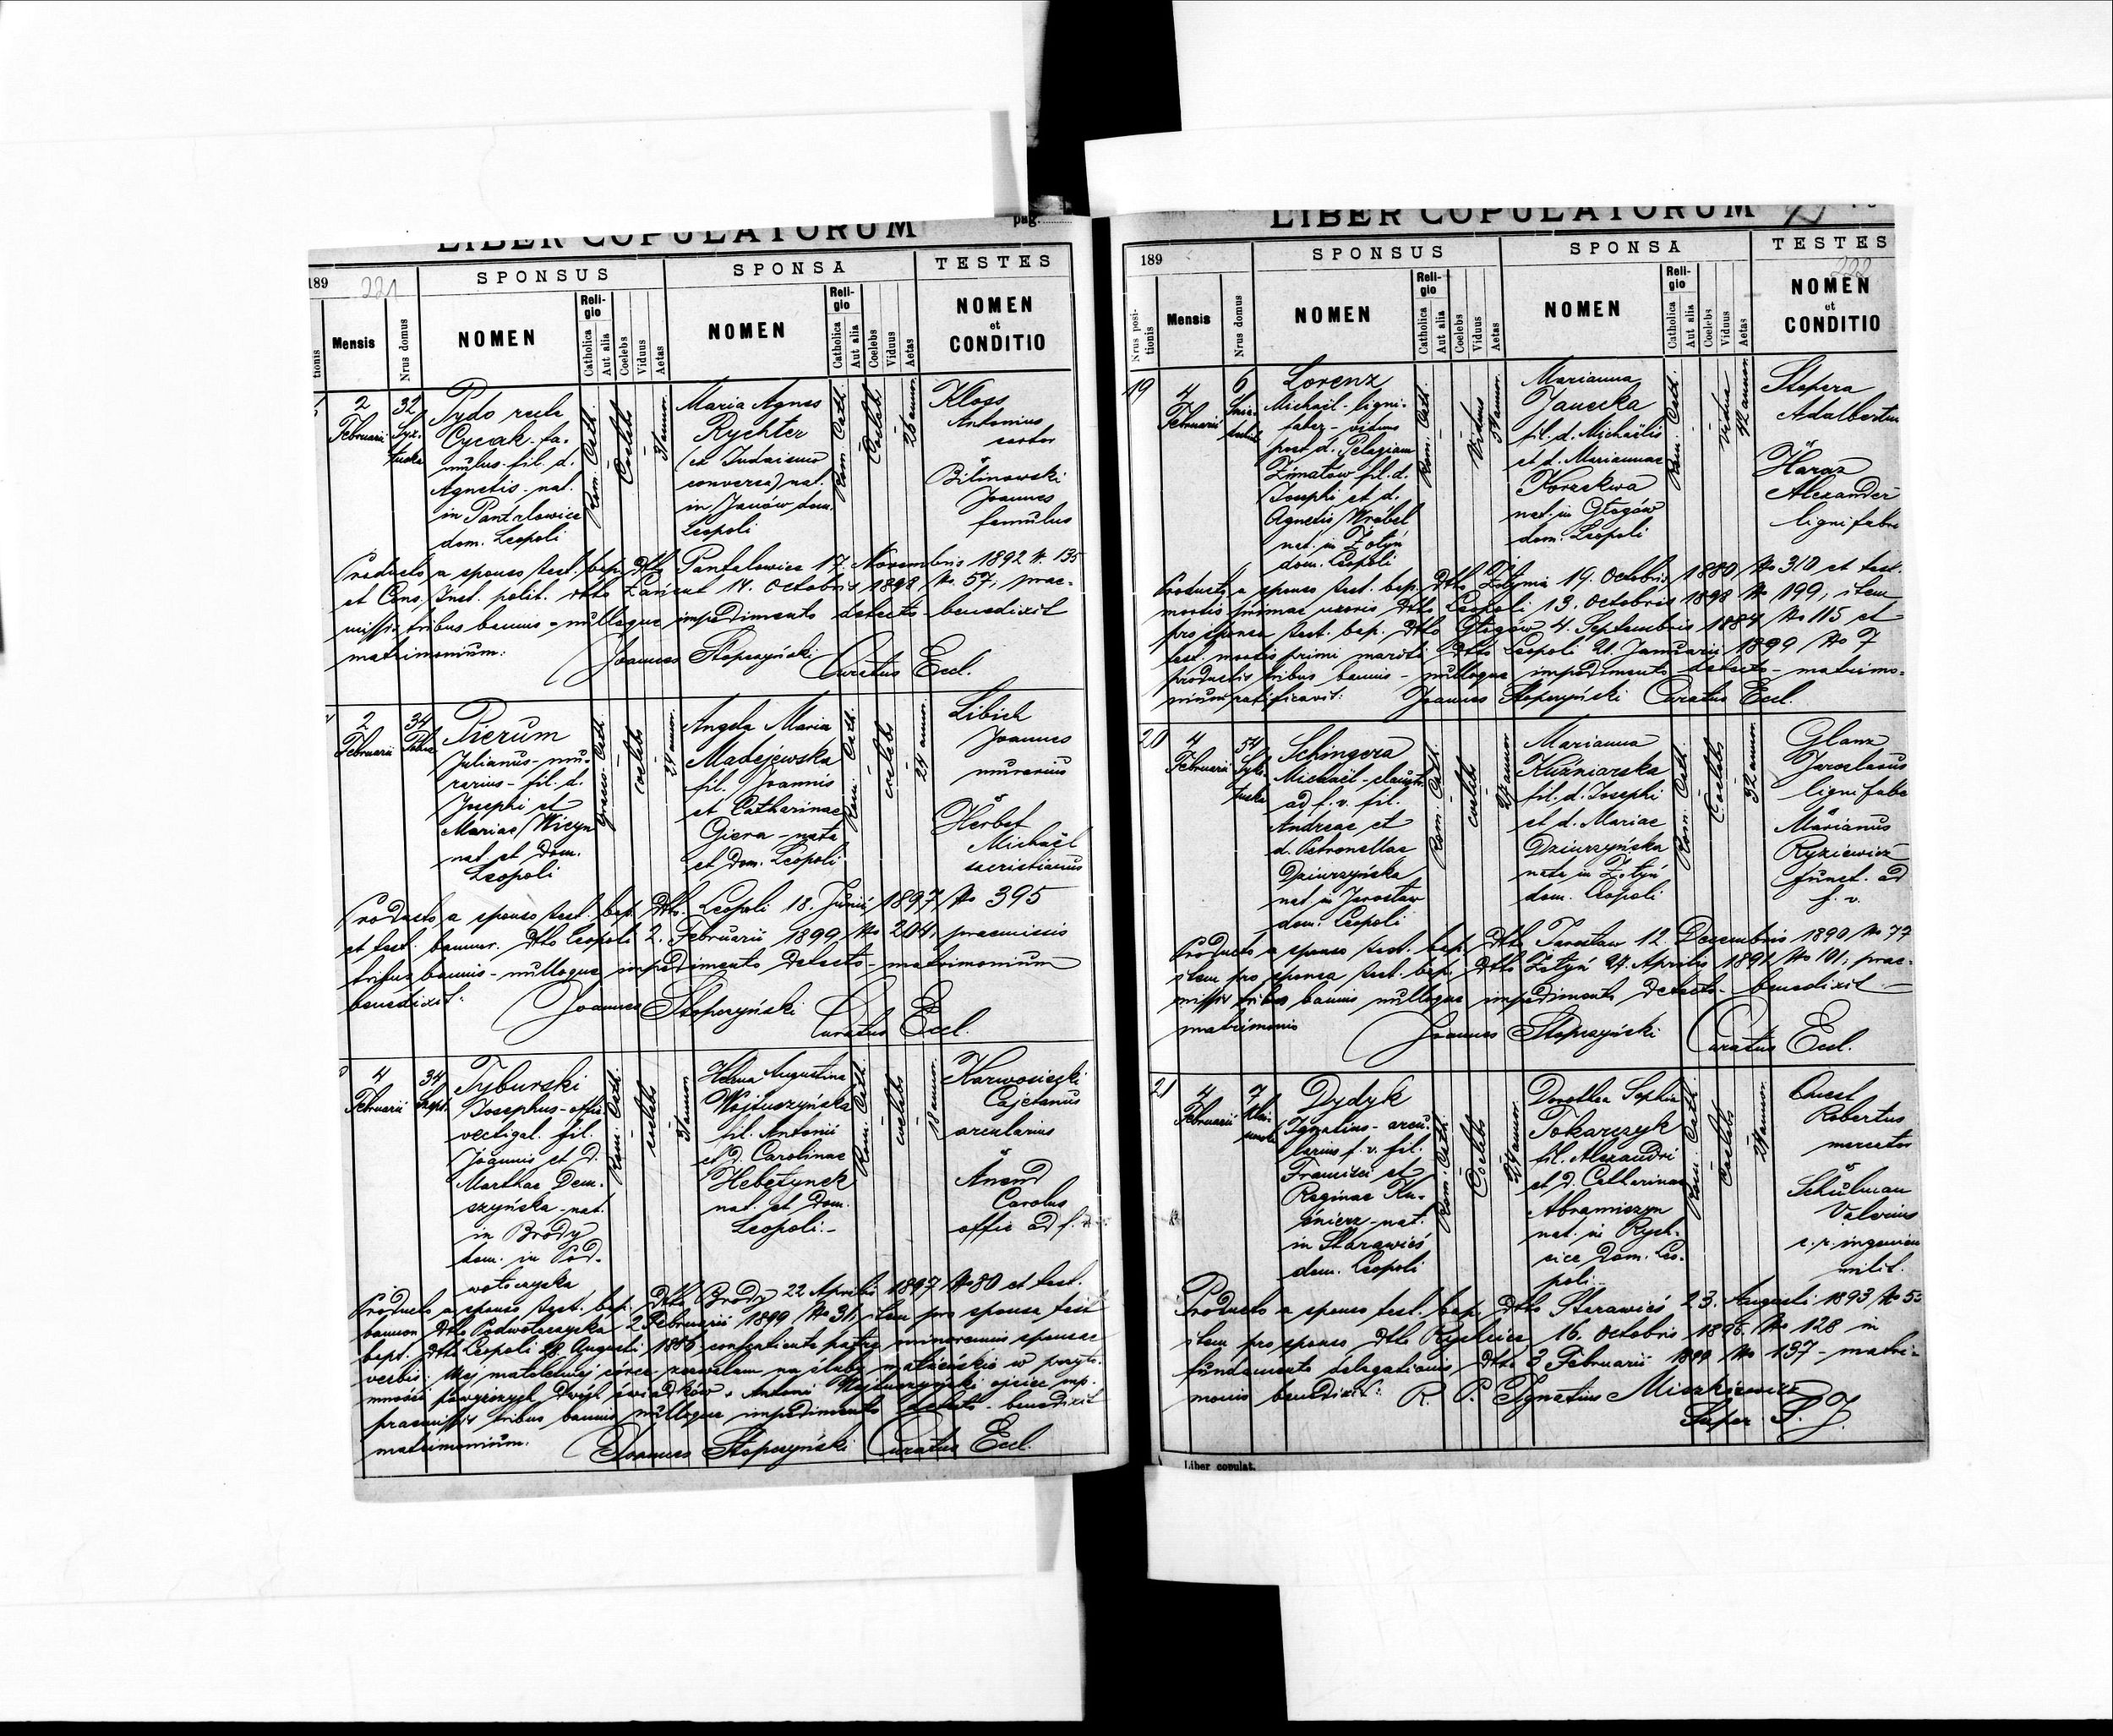 LIBER COPULATORUM
pag.
189
221
SPONSUS
SPONSA
TESTES
tionis
Mensis
Nrus domus
NOMEN
Religio
Catholica
Aut alia
Coelebs
Viduus
Aetas
NOMEN
Religio
Catholica
Aut alia
Coelebs
Viduus
Aetas
NOMEN
et
CONDITIO
2
Februarii
32
Syx-
tuska
Pydo recte
Cycak - fa-
mulus - fil. d.
Agnetis - nat.
in Pantalowice
dom. Leopoli
Rom. Cath.
Coelebs
31 annor.
Maria Agnes
Rychter
(ex Judaismo
conversa) nat.
in Janów dom.
Leopoli
Rom. Cath.
Coelebs
26 annor.
Kloss
Antonius
sartor
Bilinowski
Joannes
famulus
Producto a sponso test. bap. dtto Pantalowice 17. Novembris 1892 N. 135
et Cons. Inst. polit. dtto Łańcut 14. Octobris 1898 No. 57, prae-
missis tribus bannis - nulloque impedimento detecto - benedixit
matrimonium: Joannes Stopczyński Curatus Eccl.
2
Februarii
34
Pierum
Julianus - mu-
rarius - fil. d.
Josephi et
Mariae Wicyn
nat. et dom.
Leopoli
coelebs
24 annor.
Angela Maria
Madejewska
fil. Joannis
et Catharinae
Giera - nata
et dom. Leopoli
Rom. Cath.
coelebs
24 annor.
Libich
Joannes
murarius
Herbet
Michaël
sacristianus
Producto a sponso test. bap. dtto. Leopoli 18. Junii 1897 No 395
et test. bannor. dtto Leopoli 2. Februarii 1899 No 204, praemissis
tribus bannis - nulloque impedimento detecto - matrimonium
benedixit: Joannes Stopczyński Curatus Eccl.
4
Februarii
34
Tyburski
Josephus - offic.
vectigal. fil.
Joannis et d.
Marthae Dem-
szyńska - nat.
in Brody
dom. in Pod-
wołoczyska
Rom. Cath.
coelebs
31 annor.
Helena Augustina
Wojtuszyńska
fil. Antonii
et d. Carolinae
Hebetynek
nat. et dom.
Leopoli.-
Rom. Cath.
coelebs
18 annor.
Karwosiecki
Cajetanus
arcularius
Anend
Carolus
offic ad f.
Producto a sponso test. bap. dtto Brody 22 Aprilis 1897 No 80 et test.
bannor. dtto Podwołoczyska 2 Februarii 1899 No 31, item pro sponsa test
bapt. dtto Leopoli 28. Augusti 1886 consentiente patre minorennis sponsae
verbis: Mej małoletniej córce zezwalam na śluby małżeńskie w przyto-
mności powyższych dwóch świadków. Antoni Wojtuszyński ojciec mp.
praemissis tribus bannis nulloque impedimento detecto - benedixit
matrimonium. Joannes Stopczyński Curatus Eccl.
LIBER COPULATORUM
189
222
SPONSUS
SPONSA
TESTES
Nrus positionis
Mensis
Nrus domus
NOMEN
Religio
Catholica
Aut alia
Coelebs
Viduus
Aetas
NOMEN
Religio
Catholica
Aut alia
Coelebs
Viduus
Aetas
NOMEN
et
CONDITIO
19
4
Februarii
6
Lorenz
Michaël - ligni-
faber - viduus
post d. Pelagiam
Zimatów fil. d.
Josephi et d.
Agnetis Wróbel
nat. in Żołyń
dom. Leopoli
Rom. Cath.
Viduus
Marianna
Janecka
fil. d. Michaëlis
et d. Mariannae
Korzekwa
nat. in Głogów
dom. Leopoli
Rom. Cath.
Vidua
42 annor.
Stopera
Adalbertus
Haraz
Alexander
lignifaber
Producto a sponso test. bap. dtto Żołynia 19. Octobris 1880 No 310 et test.
mortis primae uxoris dtto Leopoli 13. Octobris 1898 No 199, item
pro sponsa test. bap. dtto Głogów 4. Septembris 1884 No 115 et
test. mortis primi mariti dtto Leopoli 21. Januarii 1899 No 7
productis tribus bannis - nulloque impedimento detecto - matrimo-
nium ratificavit: Joannes Stopczyński Curatus Eccl.
20
4
Februarii
54
Syks-
tuska
Schingera
Michaël - claustr.
ad f. v. fil.
Andreae et
d. Petronellae
Dziurzyńska
nat in Jarosław
dom. Leopoli
Rom. Cath.
coelebs
27 annor
Marianna
Kuźniarska
fil. d. Josephi
et d. Mariae
Dziurzyńska
nata in Żołyń
dom. Leopoli
Rom. Cath.
Coelebs
32 annor.
Glanz
Jaroslaus
lignifabe
Marianus
Ryziewicz
funct. ad
f. v.
Producto a sponso test. bap. dtto Jarosław 12. Decembris 1890 No 77
item pro sponsa test. bap. dtto Żołyń 24. Aprilis 1891 No 101, prae-
missis tribus bannis nulloque impedimento detecto - benedixit
matrimonio Joannes Stopczyński Curatus Eccl.
21
4
Februarii
7
Dydyk
Ignatius - arcu-
larius f. v. fil.
Francisci et
Reginae Ku-
śnierz - nat.
in Starawieś
dom. Leopoli
Rom. Cath.
Coelebs
24 annor.
Dorothea Sophia
Tokarczyk
fil. Alexandri
et d. Catharinae
Abramiszyn
nat. in Rych-
cice dom. Leo-
poli.-
Rom. Cath
Coelebs
24 annor.
Quest
Robertus
mercator
Schulman
Valerius
c. r. ingenieu
milit.
Producto a sponso test. bap. dtto Starawieś 23. Augusti 1893 No 53
item pro sponso dtto Rychcice 16. Octobris 1896. No 128 in
fundamento delegationis dtto 3 Februarii 1899 No 137 - matri-
monio benedixit: R. P. Ignatius Mieszkiewicz
Super. S. J.
Liber copulat.